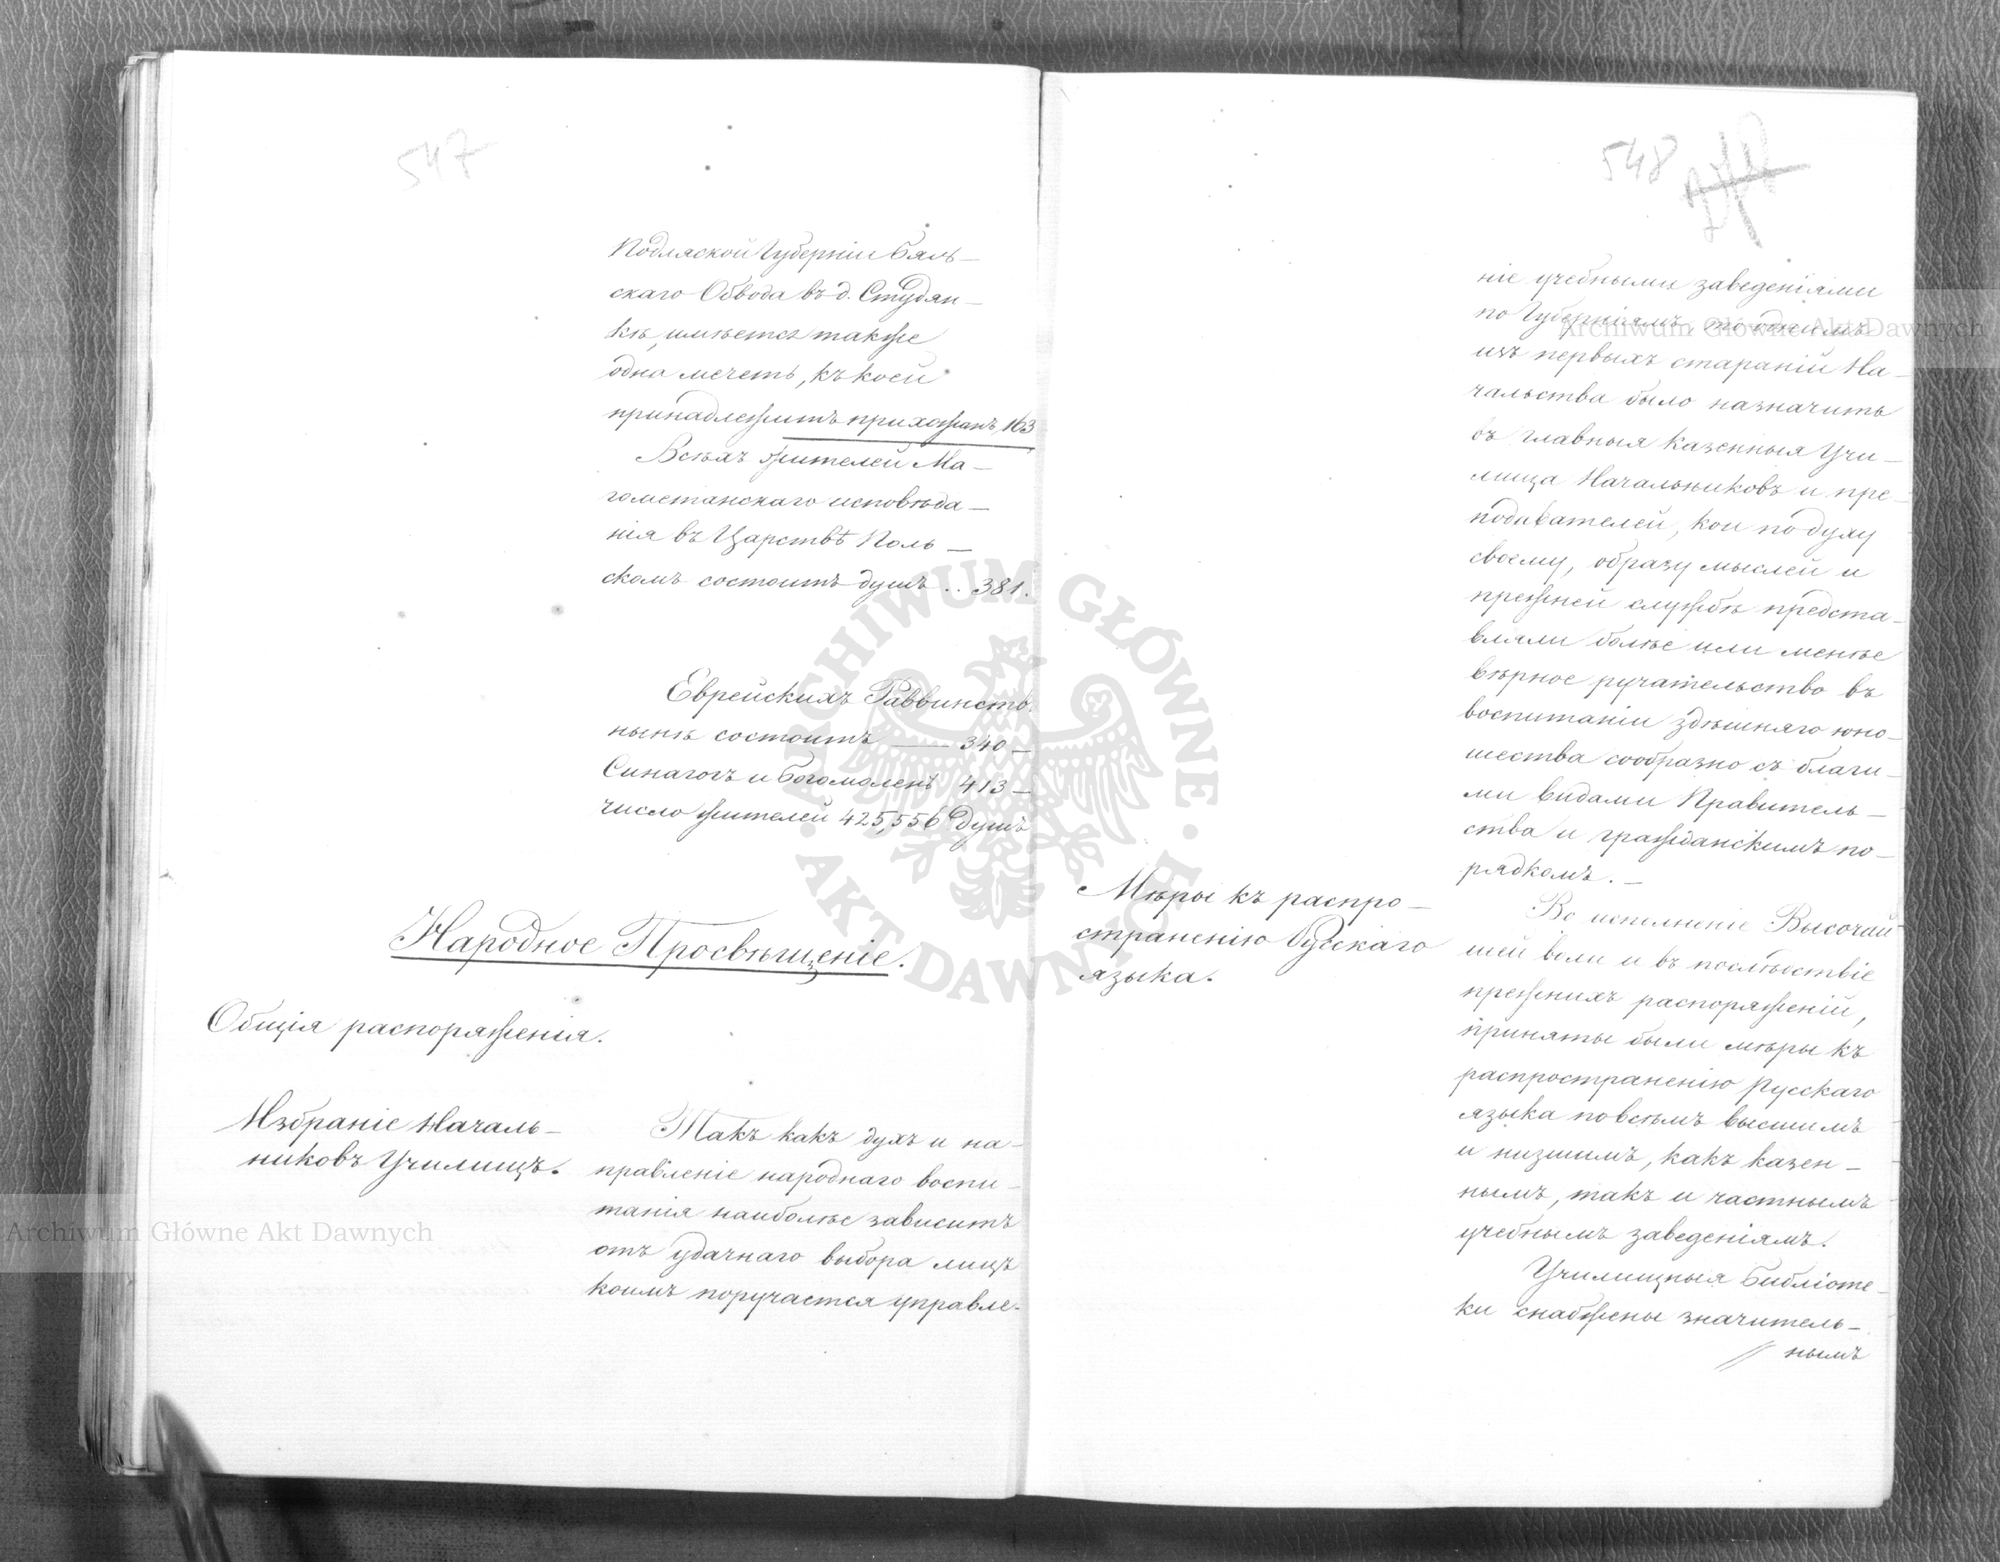 547
Подляской Губерніи Бяль-
скаго Обвода въ д. Студян-
кѣ, имѣется также
одна мечеть, къ коей
принадлежитъ прихожанъ, 163
Всѣхъ жителей Ма-
гометанскаго исповѣда-
нія въ Царствѣ Поль-
скомъ состоитъ душъ .. 381.
Еврейскихъ Раввинств.
нынѣ состоитъ — 340 —
Синагогъ и Богомоленъ 413 —
число жителей 425,556 душъ
Народное Просвѣщеніе.
Общія распоряженія.
Избраніе Началь-
никовъ Училищъ.
Такъ какъ духъ и на-
правленіе народнаго воспи-
танія наиболѣе зависитъ
отъ удачнаго выбора лицъ
коимъ поручается управле-
548
ніе учебными заведеніями
по Губерніямъ, то однимъ
изъ первыхъ стараній На-
чальства было назначить
въ главныя казенныя Учи-
лища Начальниковъ и пре-
подавателей, кои по духу
своему, образу мыслей и
прежней службѣ предста-
вляли болѣе или менѣе
вѣрное ручательство въ
воспитаніи здѣшняго юно-
шества сообразно съ благи-
ми видами Правитель-
ства и гражданскимъ по-
рядкомъ. —
Мѣры къ распро-
страненію Русскаго
языка.
Во исполненіе Высочай-
шей воли и въ послѣдствіе
прежнихъ распоряженій,
приняты были мѣры къ
распространенію Русскаго
языка по всѣмъ высшимъ
и низшимъ, какъ казен-
нымъ, такъ и частнымъ
учебнымъ заведеніямъ.
Училищныя Библіоте-
ки снабжены значитель-
// нымъ
Archiwum Główne Akt Dawnych
Archiwum Główne Akt Dawnych
ARCHIWUM GŁÓWNE · AKT DAWNYCH ·